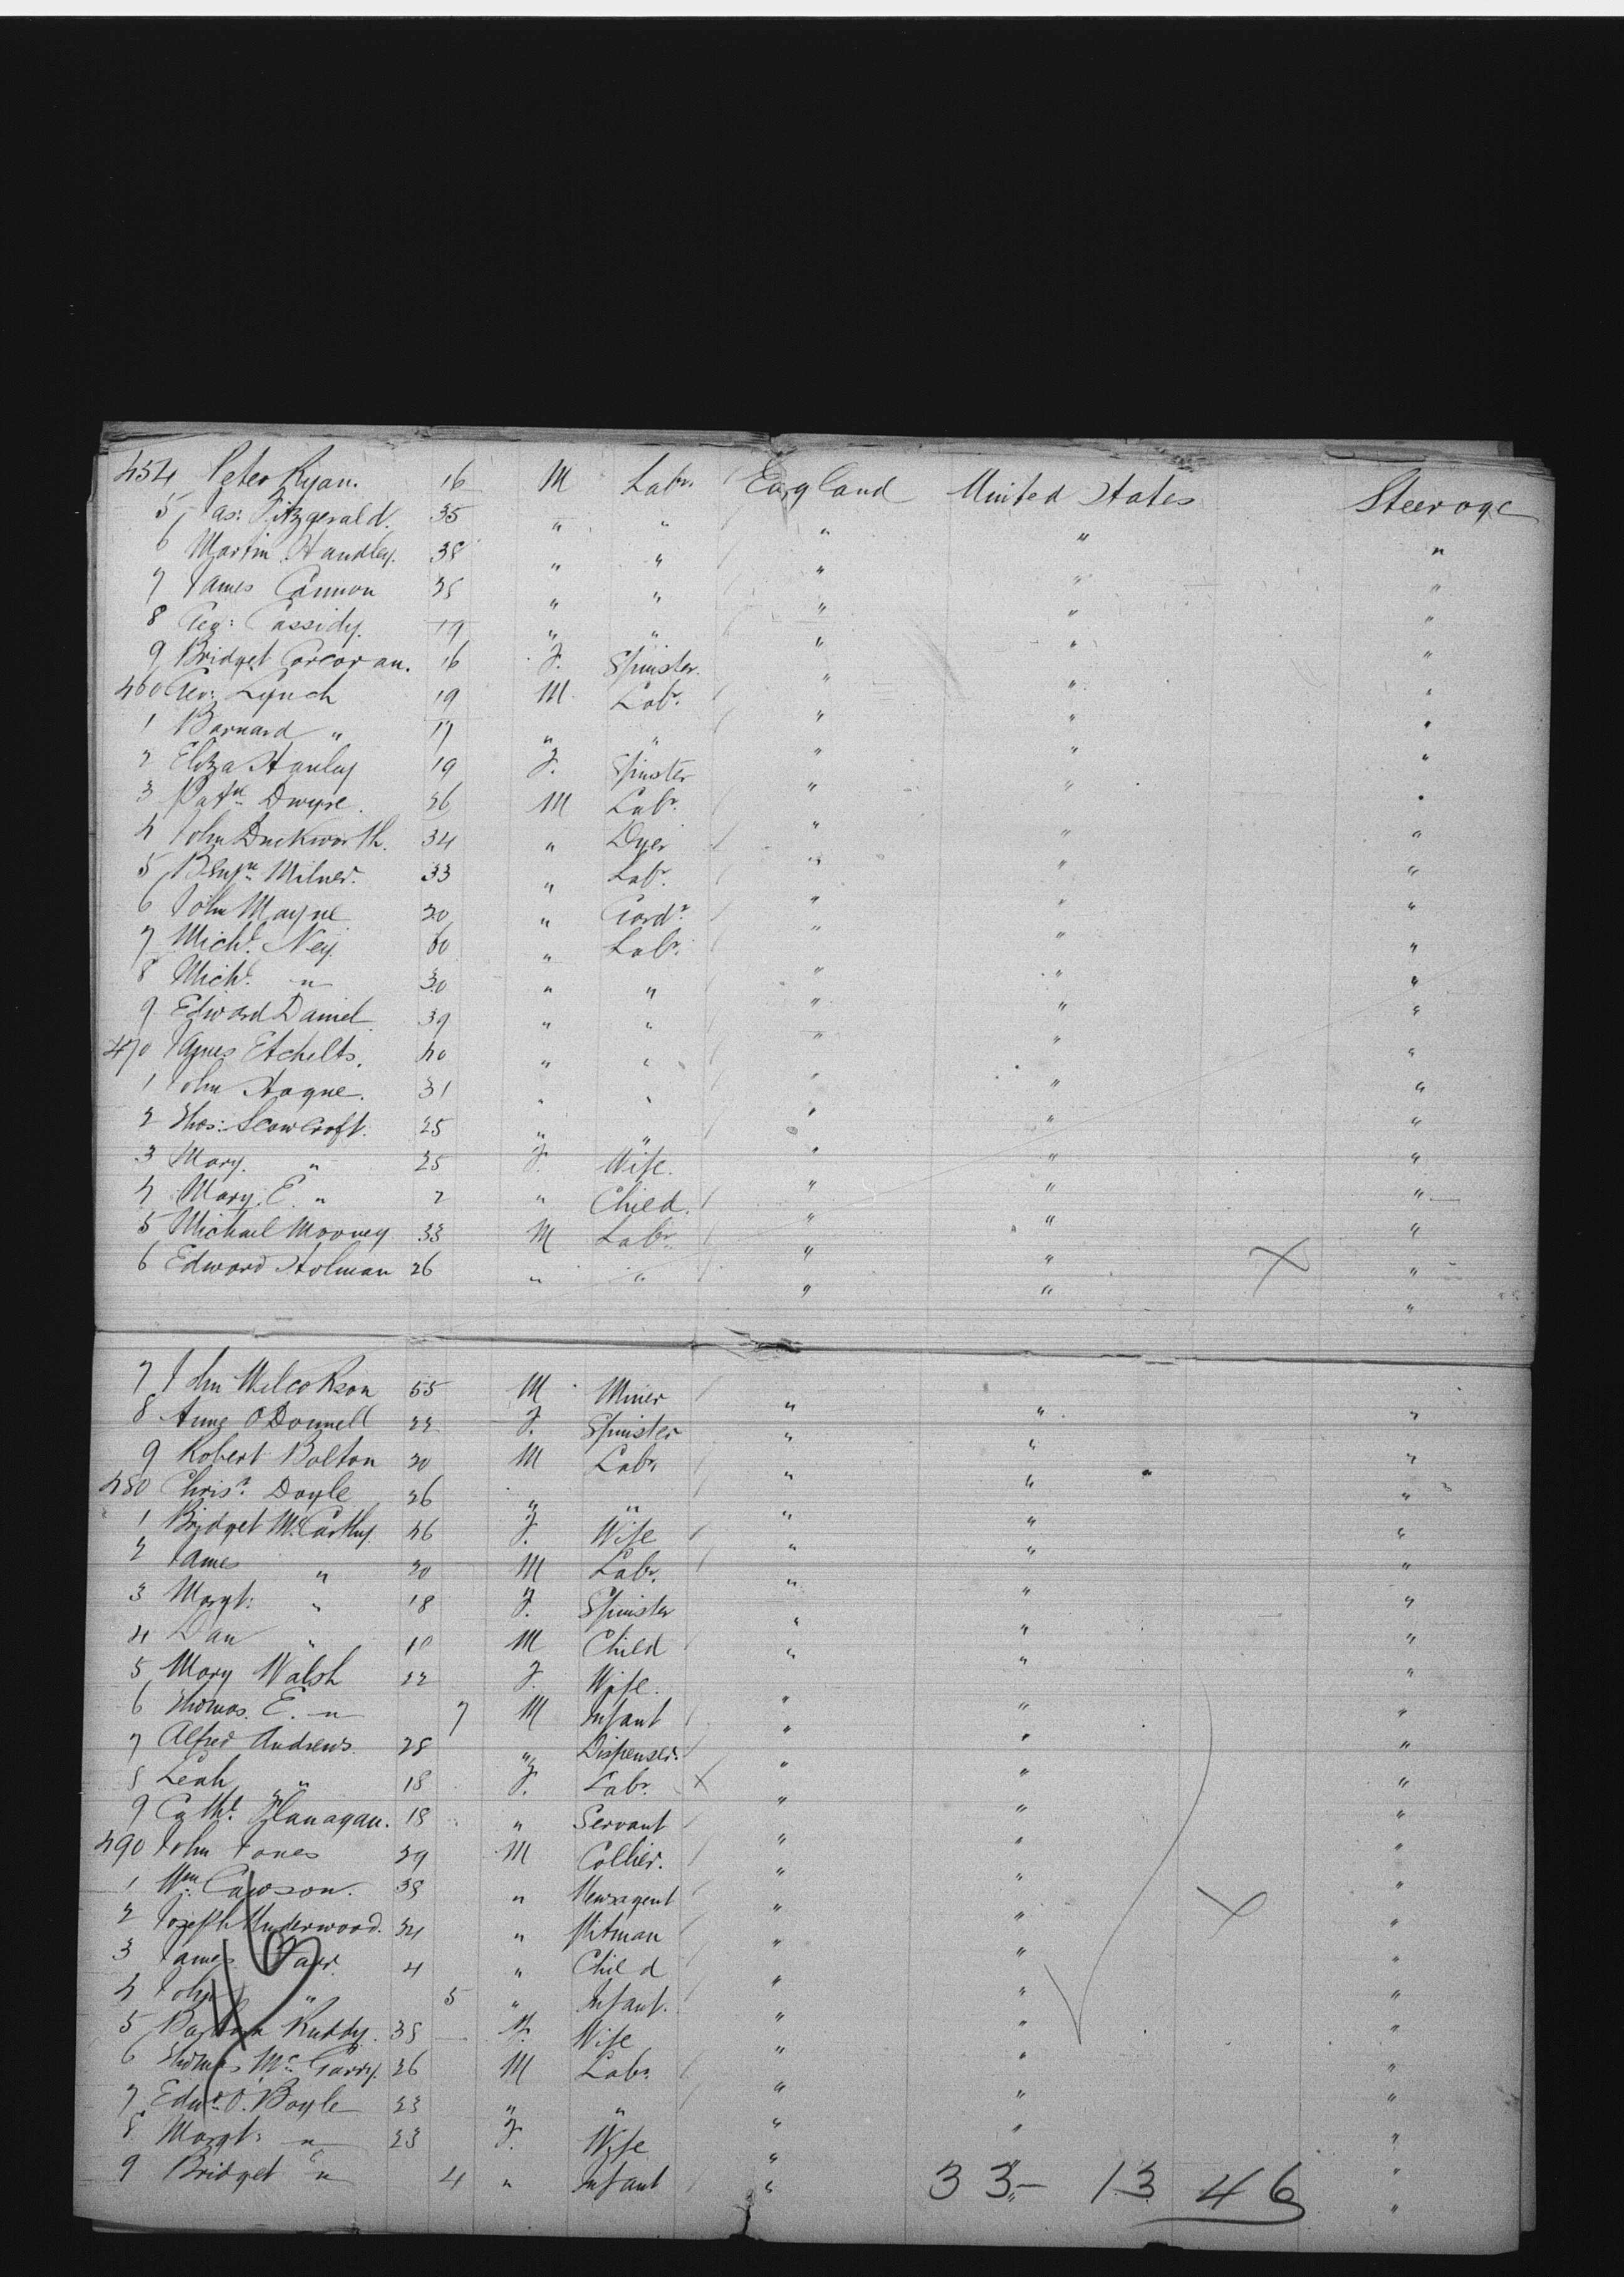 454 Peter Ryan. 16 M Labr. England United States Steerage
5 Jas: Fitzgerald. 35 " " " " "
6 Martin Handley. 38 " " " " "
7 James Cannon 35 " " " " "
8 Geo: Cassidy. 19 " " " " "
9 Bridget Corcoran. 16 F. Spinster. " " "
460 Geo: Lynch 19 M Labr. " " "
1 Barnard " 17 " " " " "
2 Eliza Hanley 19 F. Spinster " " "
3 Patk Dwyre. 36 M Labr. " " "
4 John Duckworth. 34 " Dyer " " "
5 Benjn Milner. 33 " Labr. " " "
6 John Mayne 20 " Gardr. " " "
7 Michl. Ney 60 " Labr. " " "
8 Michl. " 30 " " " " "
9 Edward Daniel 39 " " " " "
470 James Etchells. 40 " " " " "
1 John Hague. 31 " " " " "
2 Thos: Scowcroft. 25 " " " " "
3 Mary. " 25 F. Wife. " " "
4 Mary. E. " 2 " Child. " " "
5 Michael Mooney 33 M Labr. " " "
6 Edward Holman 26 " " " " "
7 John Wilcokson 55 M Miner " " "
8 Anne O'Donnell 22 F. Spinster " " "
9 Robert Bolton 20 M Labr " " "
480 Chrisr. Doyle 26 " " " " "
1 Bridget McCarthy. 46 F. Wife " " "
2 James " 20 M Labr. " " "
3 Margt: " 18 F. Spinster " " "
4 Dan " 10 M Child " " "
5 Mary Walsh 22 F. Wife. " " "
6 Thomas. E. " 7 M Infant " " "
7 Alfred Andrews. 28 " Dispenser. " " "
8 Leah " 18 F. Labr. X " " "
9 Cathe. Flanagan. 18 " Servant " " "
490 John Jones 39 M Collier. " " "
1 Wm Cawson. 38 " Newsagent " " "
2 Joseph Underwood. 34 " Pitman " " "
3 James 4 " Child " " "
4 John " 5 " Infant. " " "
5 Barbara Ruddy. 38 F. Wife " " "
6 Thomas McGarry. 26 M Labr. " " "
7 Edwd O. Boyle 23 " " " " "
8 Margt: " 23 F. Wife " " "
9 Bridget " 4 " Infant " " "
33 - 13 46